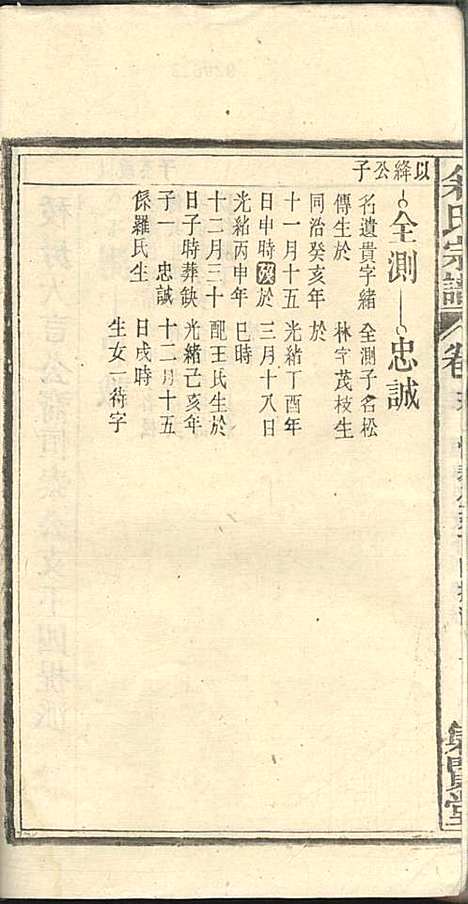 余氏宗譜 卷
集賢堂
以絳公子
全測 忠誠
名遺貴字緒
傳生於
同治癸亥年
十一月十五
日申時歿於
光緒丙申年
十二月三十
日子時葬缺
子一 忠誠
係羅氏生
全測子名松
林字茂枝生
於
光緒丁酉年
三月十八日
巳時
配王氏生於
光緒己亥年
十二月十五
日戌時
生女一待字